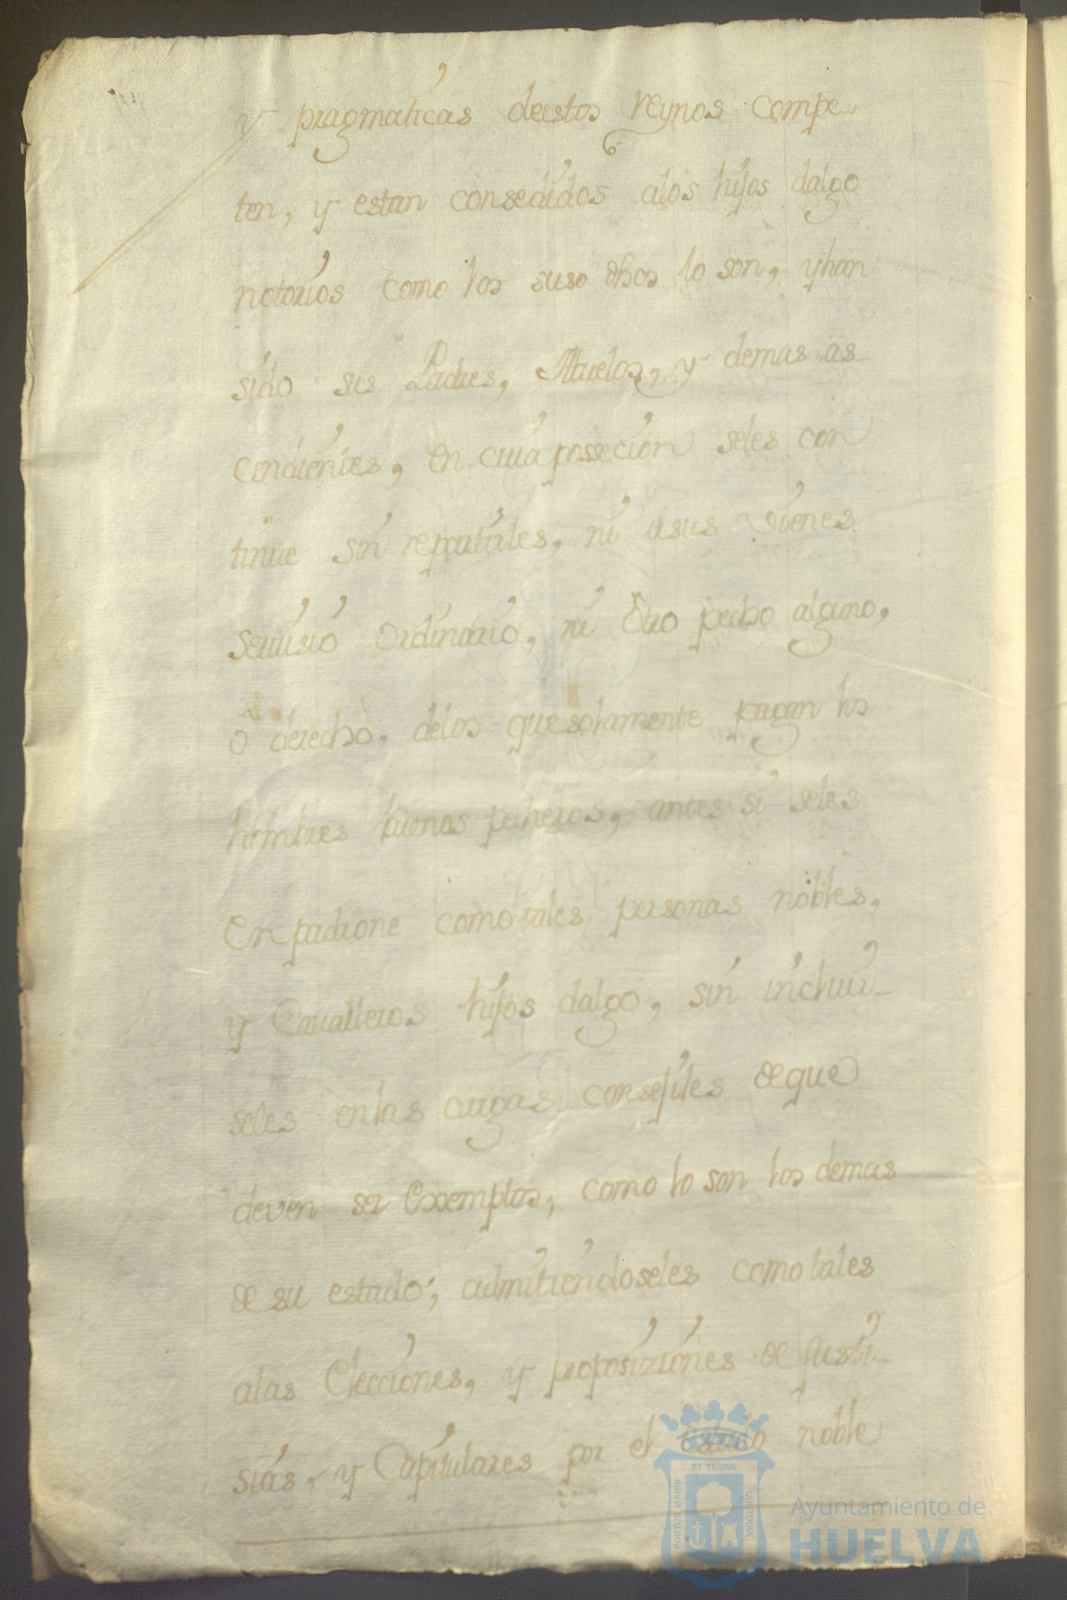 y pragmaticas deestos reynos compe
ten, y estan consedidos alos hijos dalgo
notorios como los suso dhos lo son, yhan
sido sus Padres, Abuelos, y demas as
cendientes, en cuia posecion seles con
tinue sin repartirles, ni asus vienes
servisio ordinario, ni otro pecho alguno,
o derecho, delos que solamente pagan los
hombres buenos pecheros, antes si seles
enpadrone como tales personas nobles,
y Cavalleros hijos dalgo, sin incluir-
seles enlas cargas consejiles deque
deven ser exemptos, como lo son los demas
de su estado; admitiendoseles como tales
alas Elecciones, y proposiziones de Justi-
sias, y Capitulares por el estado noble
ET TERRÆ
PORTUS MARIS
CUSTODIA
Ayuntamiento de
HUELVA